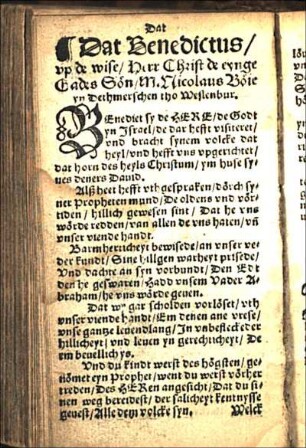 Dat
¶ Dat Benedictus /
vp de wise / Herr Christ de eynge
Gades Sön / M. Nicolaus Boie
yn Dethmerschen tho Weslenbur.
BEnedict sy de HERE / de Godt
yn Israel / de dar hefft visiteret /
vnd bracht synem volcke dat
heyl / vnd hefft vns vpgerichtet /
dat horn des heyls Christum / ym huse sy-
nes deners Dauid.
Alß heet hefft vth gespraken / dörch sy-
ner Propheten mund / De oldens vnd vör-
tiden / hillich gewesen sint / Dat he vns
wörde redden / van allen de vns haten / vñ
vnser viende handt.
Barmherticheyt bewisede / an vnser ve-
der kundt / Sine hilligen warheyt prisede /
Vnd dachte an syn vorbundt / Den Edt
den he geswaren / Hadd vnsem Vader A-
braham / he vns wörde geuen.
Dat wy gar scholden vorlöset / vth
vnser viende handt / Em denen ane vrese /
vnse gantze leuendlang / In vnbeflecke der
hillicheyt / vnd leuen yn gerechticheyt / De
em beuellich ys.
Vnd du kindt werst des högsten / ge-
nömet eyn Prophet / went du werst vörher
treden / Des HEren angesicht / Dat du si-
nen weg bereidest / der salicheyt kentnysse
geuest / Alle dem volcke syn.
Welck